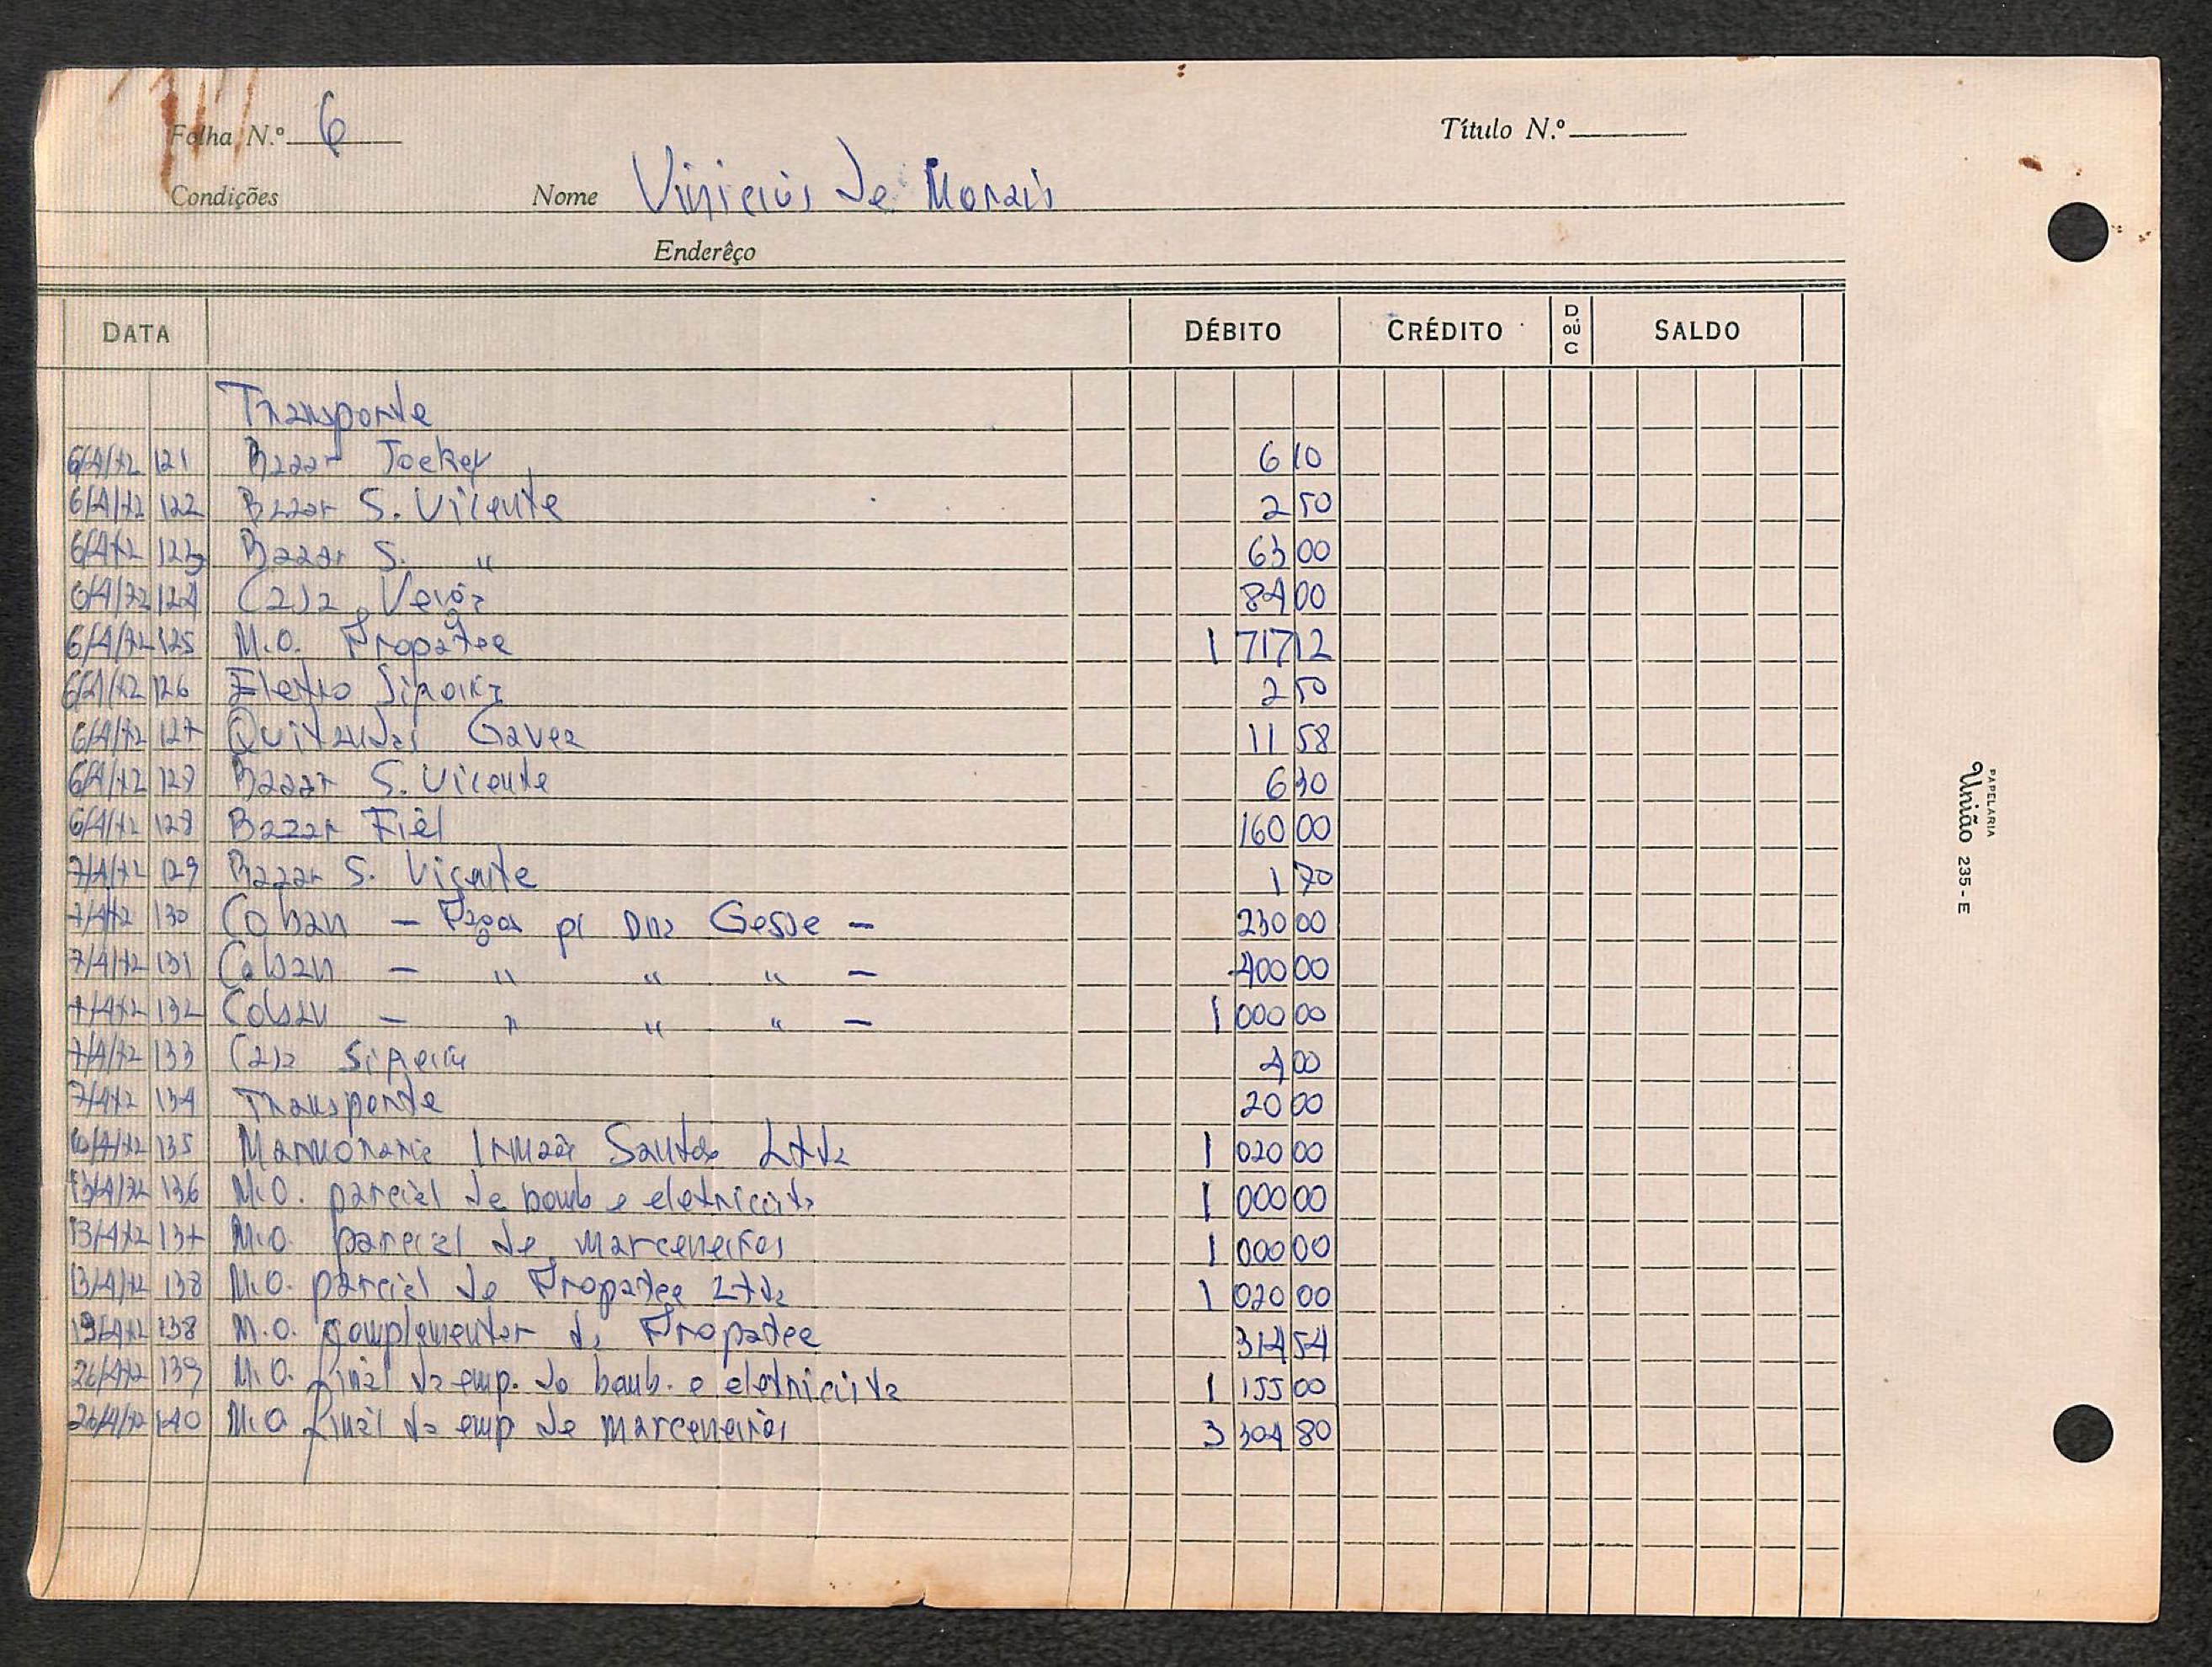 Folha N.º 6
Título N.º
Condições Nome Vinicius de Morais
Endereço
DATA DÉBITO CRÉDITO D. OU C SALDO
Transporte
6/4/72 121 Bazar Jockey 6 10
6/4/72 122 Bazar S. Vicente 2 50
6/4/72 123 Bazar S. " 63 00
6/4/72 124 Casa Veiga 84 00
6/4/72 125 M.O. Propatee 1 717 12
6/4/72 126 Eletro 2 50
6/4/72 127 Quitandas Gavea 11 58
6/4/72 128 Bazar S. Vicente 6 30
6/4/72 128 Bazar Fiél 160 00
7/4/72 129 Bazar S. Vicente 1 70
7/4/72 130 Coban — Pagos p/ Dna Gesse — 230 00
7/4/72 131 Coban — " " " — 400 00
7/4/72 132 Coban — " " " — 1 000 00
7/4/72 133 Casa 4 00
7/4/72 134 Transporte 20 00
10/4/72 135 Marmoraria Irmãos Santos Ltda 1 020 00
13/4/72 136 M.O. parcial de bomb e eletricista 1 000 00
13/4/72 137 M.O. parcial de marceneiros 1 000 00
13/4/72 138 M.O. parcial de Propatee Ltda 1 020 00
19/4/72 138 M.O. complementar da Propatee 314 54
26/4/72 139 M.O. final da emp. de bomb. e eletricista 1 155 00
26/4/72 140 M.O final da emp de marceneiros 3 304 80
PAPELARIA
União 235-E